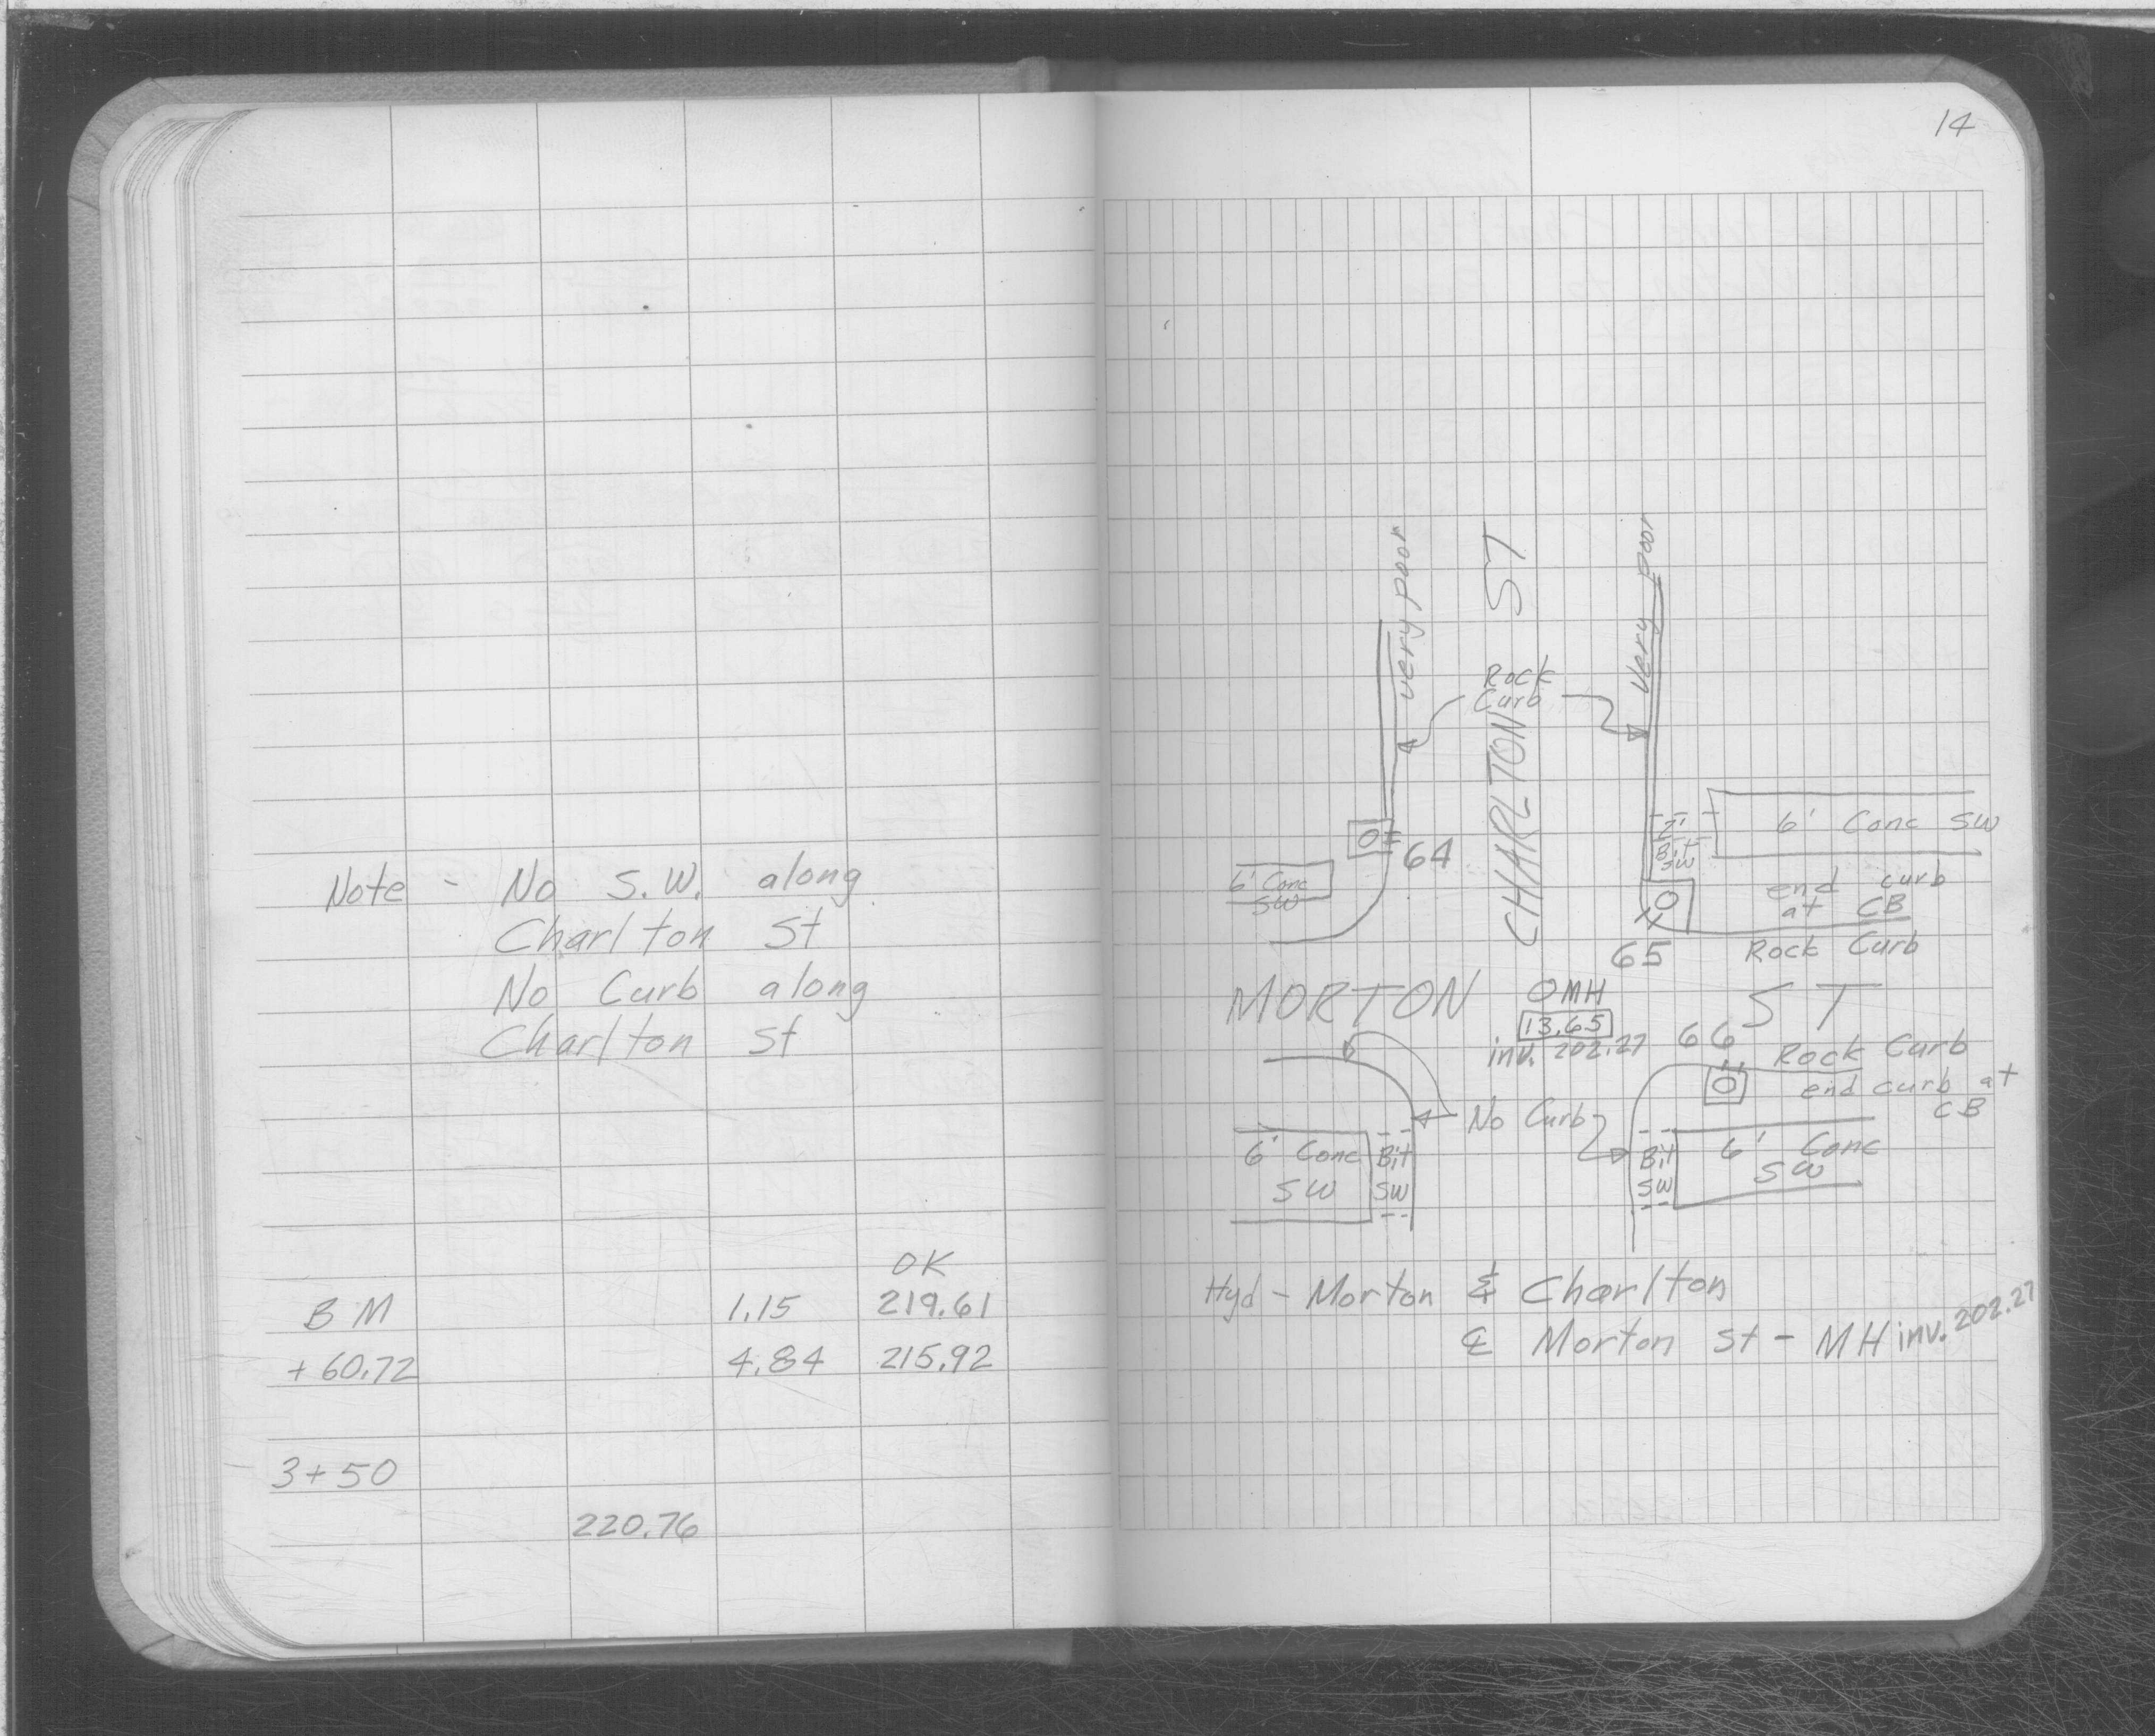 14
Note - No S.W. along
Charlton St
No Curb along
Charlton St
OK
BM 1.15 219.61
+60.72 4.84 215.92
3+50
220.76
very poor
CHARLTON ST
very poor
Rock
Curb
64
6' Conc
SW
2'
Bit
SW
6' Conc SW
end curb
at CB
65
Rock Curb
MORTON ST
OMH
13.65
inv. 202.27
66
Rock Curb
end curb at
CB
No Curb
6' Conc
SW
Bit
SW
Bit
SW
6' Conc
SW
Hyd - Morton & Charlton
℄ Morton St - MH inv. 202.27